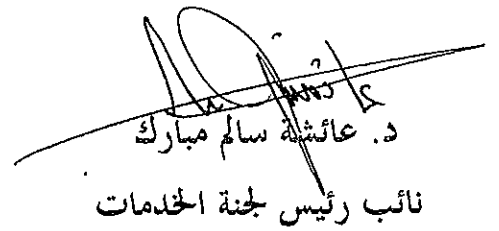 د. عائشة سالم مبارك
نائب رئيس لجنة الخدمات